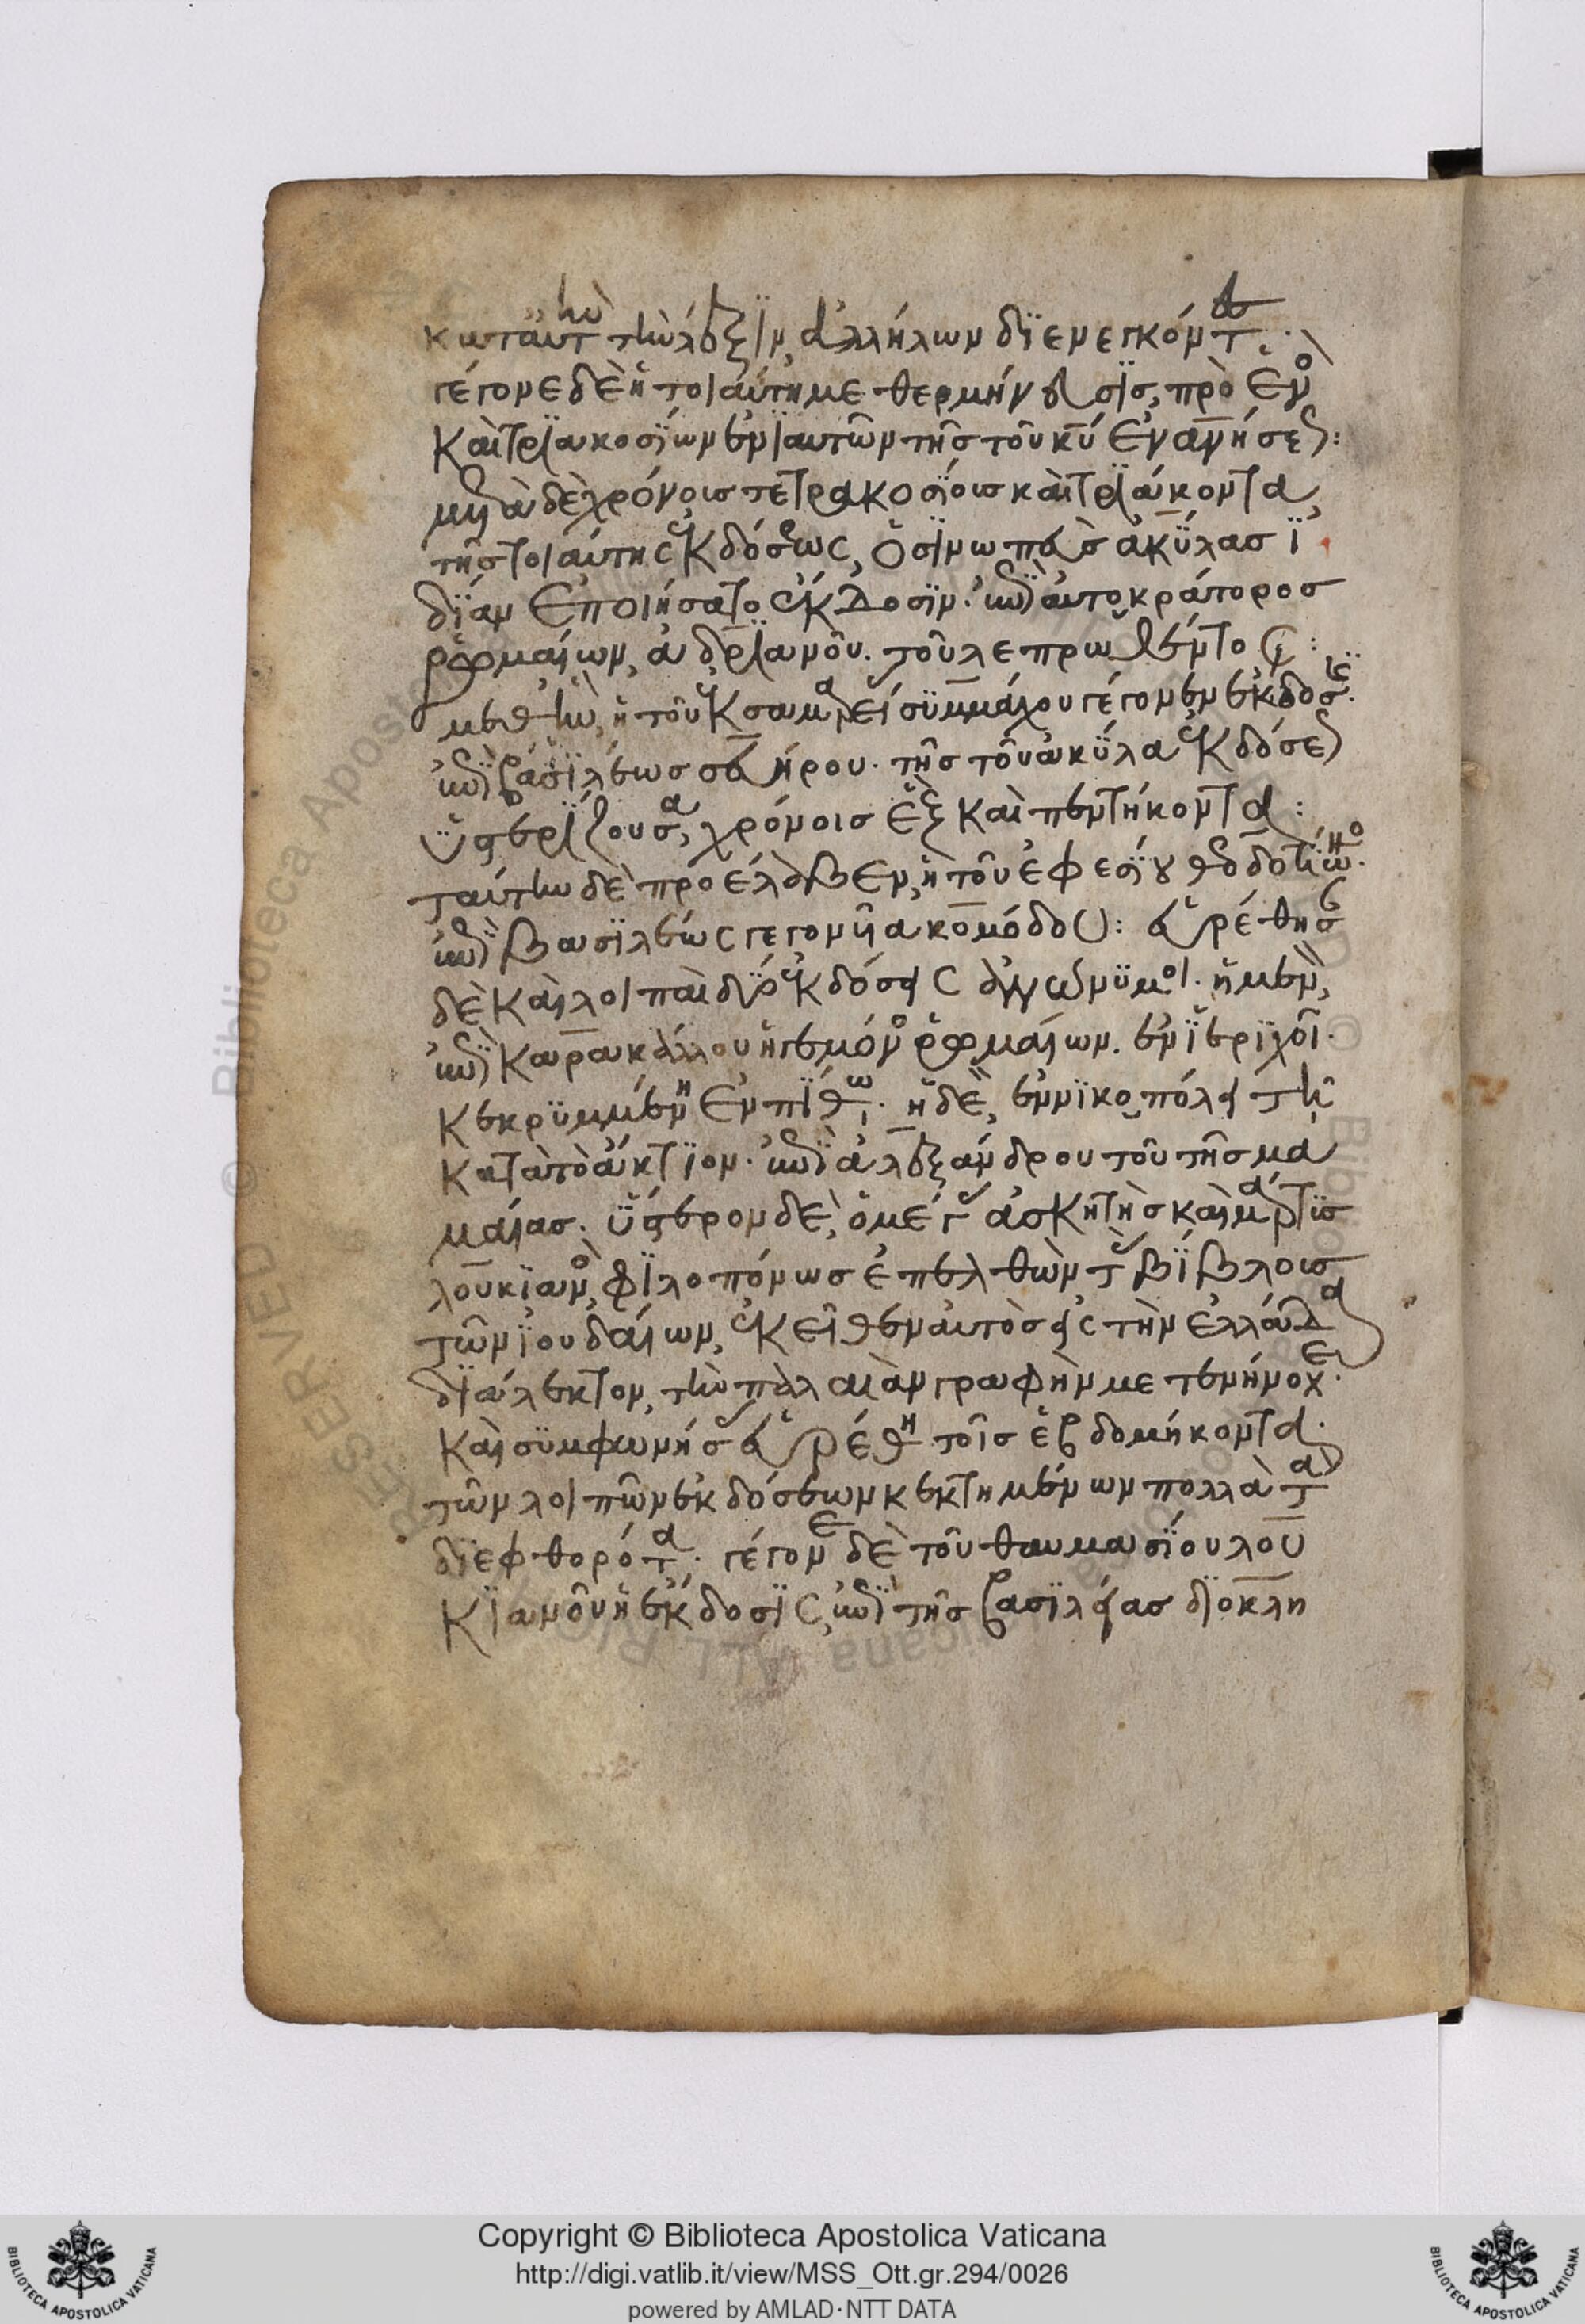 κατ' αὐτ(ὴν) τὴν λέξιν, ἀλλήλων διενεγκόντ(ες).
γέγονε δὲ ἡ τοιαύτη μεθερμήνευσις, πρὸ ἑνὸ(ς)
καὶ τριακοσίων ἐνιαυτῶν τῆς τοῦ κυ ἐναν(θρωπ)ήσε(ως):
μετὰ δὲ χρόνοις τετρακοσίοις καὶ τριάκοντα,
τῆς τοιαύτης ἐκδόσεως, ὁ σινωπεὺς ἀκύλας ἰ
δίαν ἐποιήσατο ἔκδοσιν. ἐπὶ αὐτοκράτορος
ῥωμαίων, ἀδριανοῦ. τοῦ λεπρωθέντος:
μεθ' ἣν, ἡ τοῦ ἐκ σαμαρεί(ας) συμμάχου γέγονεν ἔκδοσις.
ἐπὶ βασιλέως σευήρου. τῆς τοῦ ἀκύλα ἐκδόσε(ως)
ὑστερίζουσα, χρόνοις ἓξ καὶ πεντήκοντα:
ταύτην δὲ προέλαβεν, ἡ τοῦ ἐφεσίου θεοδοτίωνο(ς).
ἐπὶ βασιλέως γεγονυῖα κομόδου: εὑρέθησ(αν)
δὲ καὶ λοιπαὶ δύο ἐκδόσεις ἀνώνυμοι. ἡ μὲν,
ἐπὶ καρακάλλου ἡγεμόνο(ς) ῥωμαίων. ἐν ἱεριχοῖ.
κεκρυμμένη ἐν πίθω. ἡ δὲ, ἐν νικοπόλει τῆ
κατὰ τὸ ἄκτιον. ἐπὶ ἀλεξάνδρου τοῦ τῆς μα
μαίας. ὕστερον δὲ, ὁ μέγ(ας) ἀσκητὴς καὶ μάρτυς
λουκιανὸ(ς), φιλοπόνως ἐπελθὼν τ(αῖς) βίβλοις
τῶν ἰουδαίων, ἐκεῖθεν αὐτὸς εἰς τὴν ἑλλάδα
διάλεκτον, τὴν παλαιὰν γραφὴν μετενήνοχε.
καὶ συμφωνήσ(ας) εὑρέθη τοῖς ἑβδομήκοντα.
τῶν λοιπῶν ἐκδόσεων κεκτημένων πολλὰ τὰ
διεφθορότα. γέγονε δὲ τοῦ θαυμασίου λου
κιανοῦ ἡ ἔκδοσις, ἐπὶ τῆς βασιλείας διοκλη
Copyright © Biblioteca Apostolica Vaticana
http://digi.vatlib.it/view/MSS_Ott.gr.294/0026
powered by AMLAD·NTT DATA